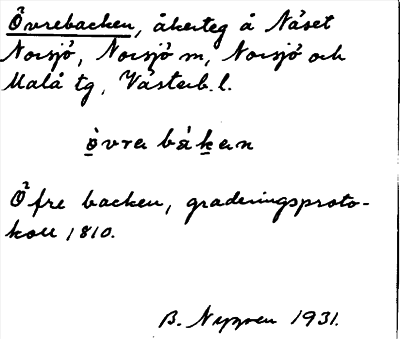 Övrebacken, åkerteg å Näset
Norsjö, Norsjö m, Norsjö och
Malå tg, Västerb. l.
òvra bákan
Öfre backen, graderingsproto-
koll 1810.
B. Nyppen 1931.